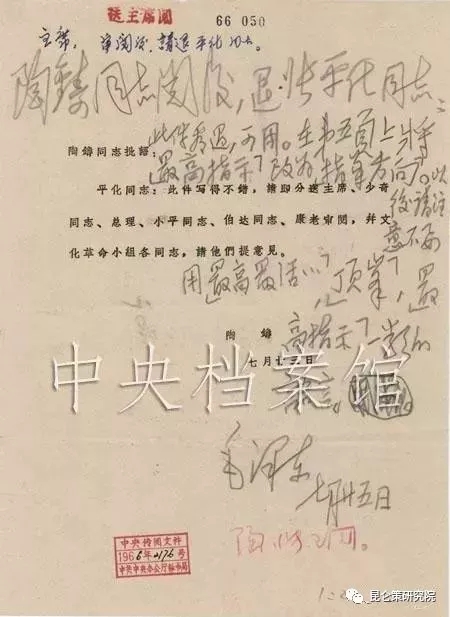 送主席閲
66 050
主席，审阅后，請退平化同志。
陶鑄同志阅后，退张平化同志：
此件看过，可用。在第五页上将
「最高指示」改为「指挥方向」。以
后请注
意不要
用「最高最活…」，「顶峯」，「最
高指示」一类的
语言。
毛泽东
七月廿五日
陶鑄同志批語：
平化同志：此件写得不错，請即分送主席、少奇
同志、总理、小平同志、伯达同志、康老审閱，幷文
化革命小組各同志，請他們提意見。
陶 鑄
七月廿三日
中央档案馆
中央传閱文件
1966年2176号
中共中央办公厅秘书局
昆仑策研究院